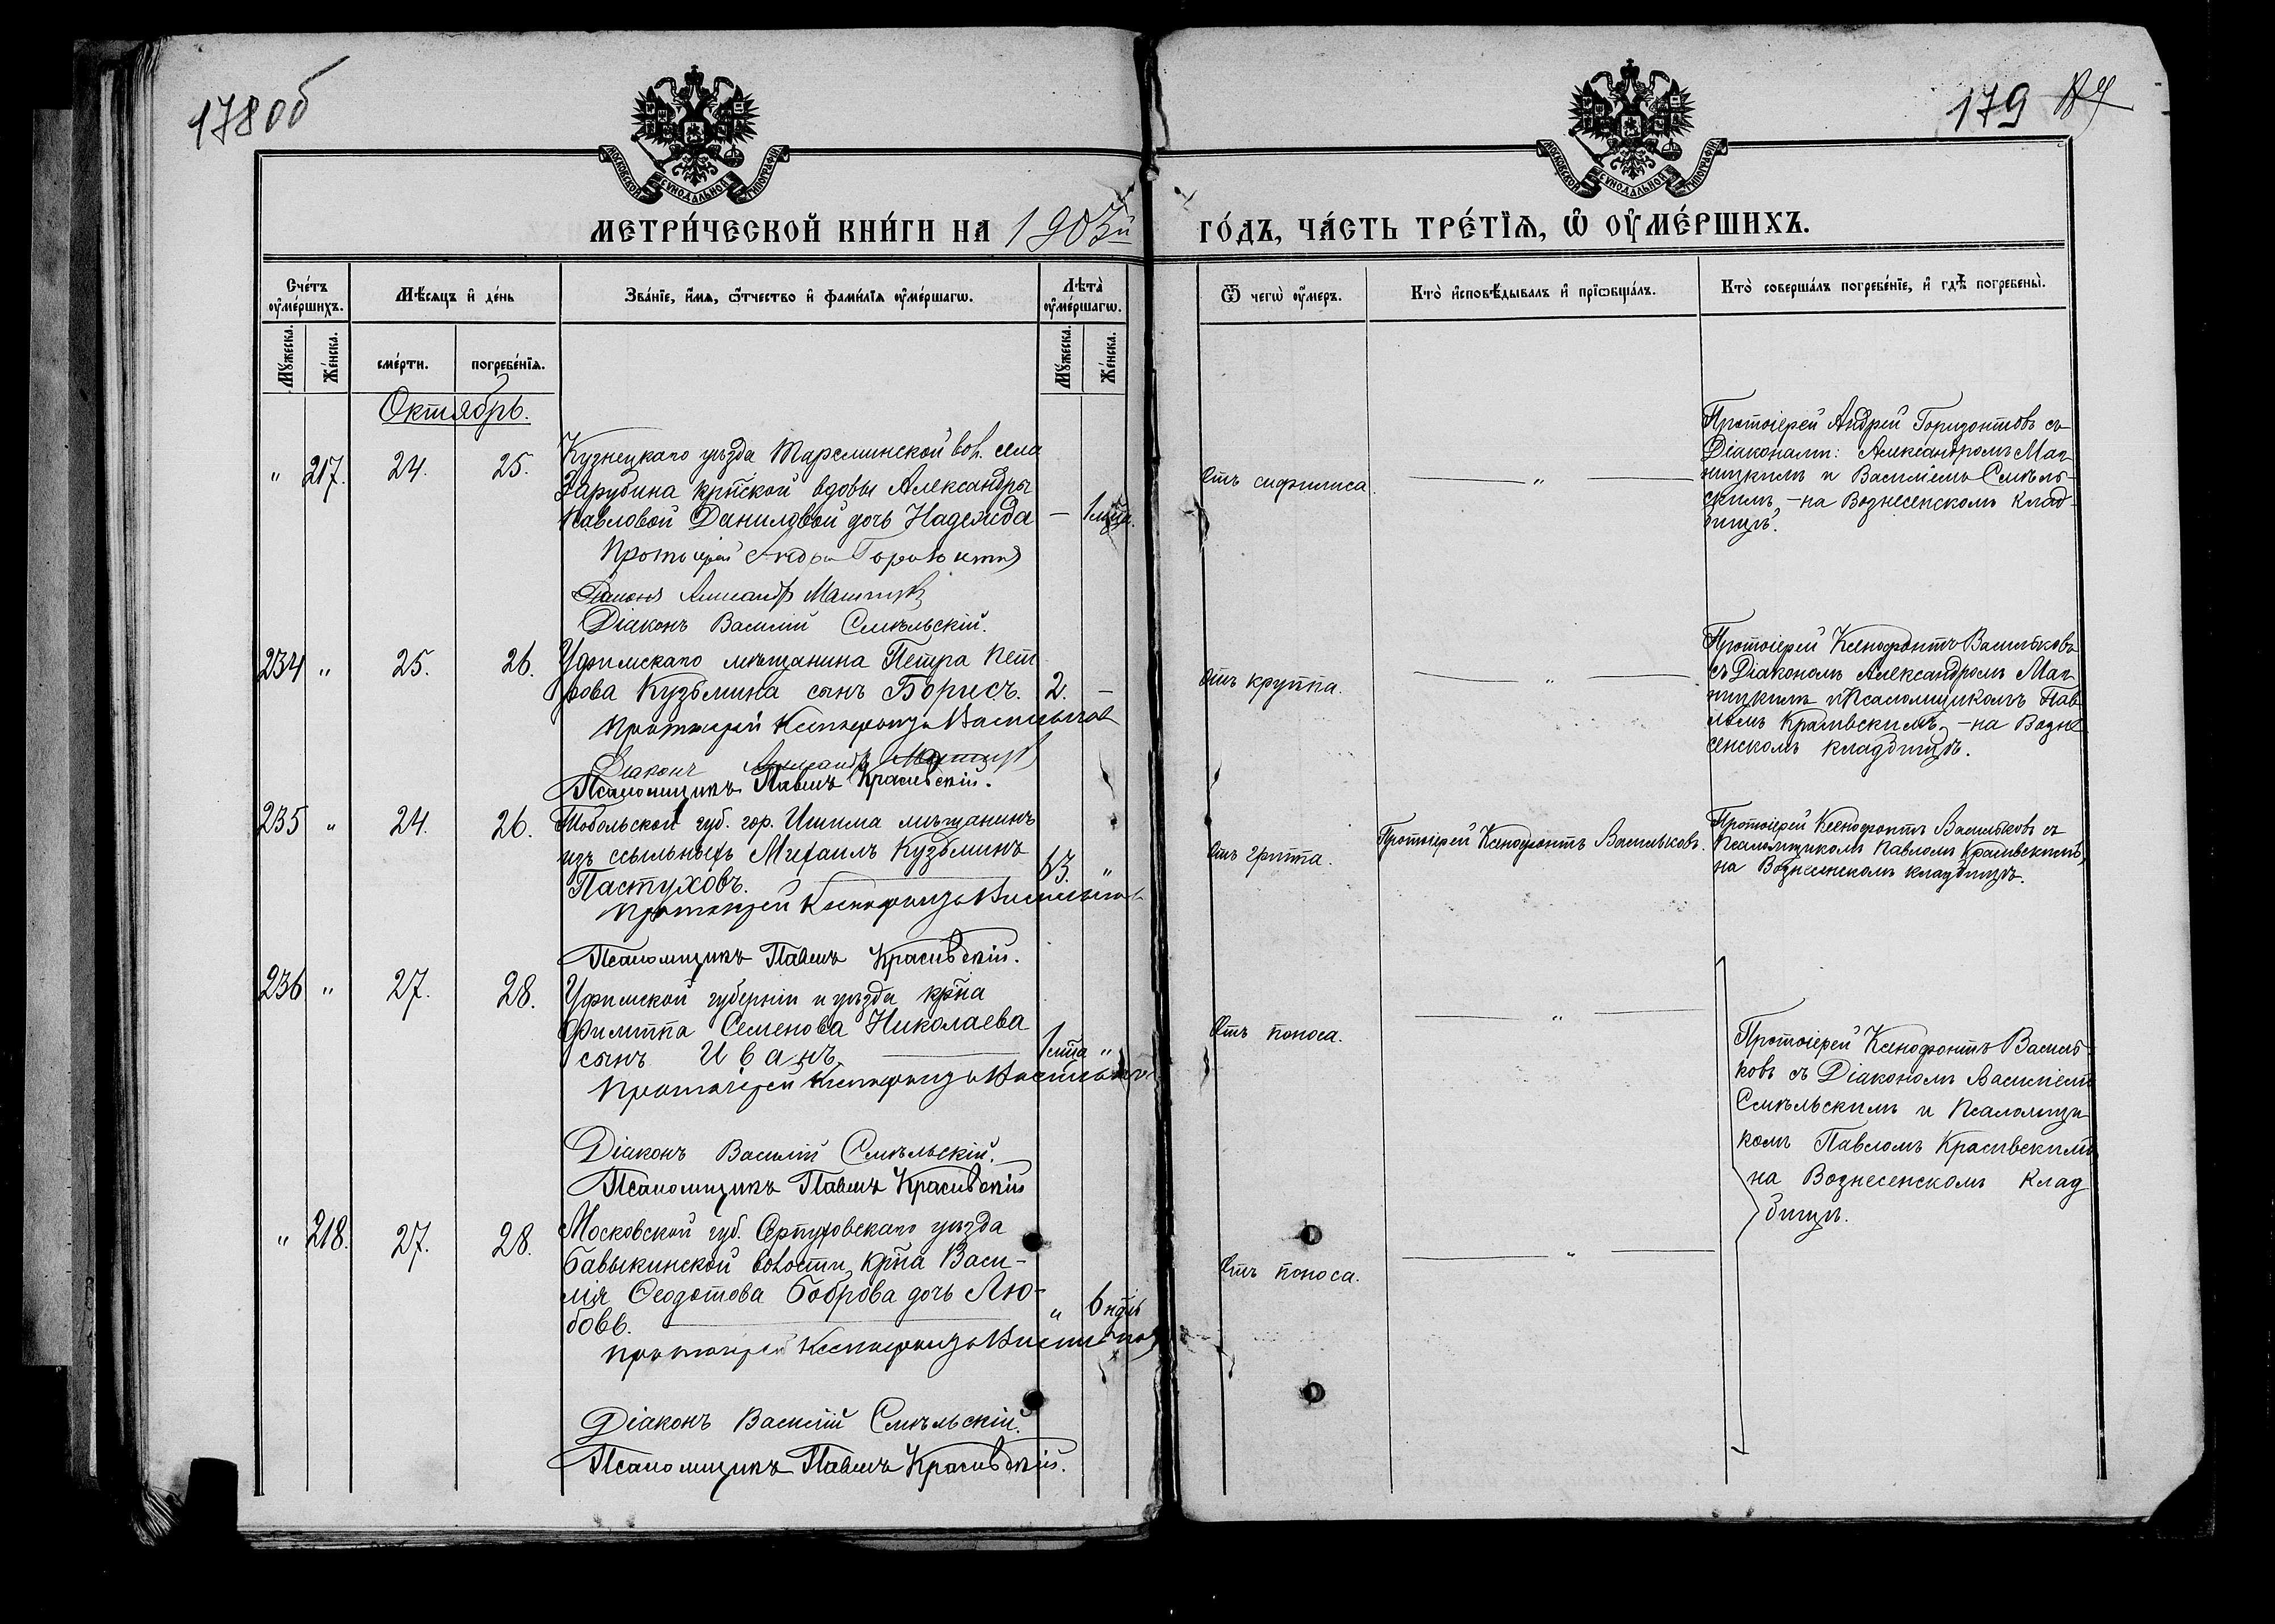 178об
179
МОСКОВСКОЙ СѴНОДАЛЬНОЙ ТИПОГРАФІИ
МОСКОВСКОЙ СѴНОДАЛЬНОЙ ТИПОГРАФІИ
МЕТРИ́ЧЕСКОЙ КНИ́ГИ НА 1903й
ГО́ДЪ, ЧА́СТЬ ТРЕ́ТІѦ, Ѽ ОУ҆МЕ́РШИХЪ.
Сче́тъ оу҆ме́ршихъ.
Мѣ́сѧцъ и҆ де́нь
Зва́нїе, и҆́мѧ, ѻ҆́тчество и҆ фамі́лїѧ оу҆ме́ршагѡ.
Лѣ́та оу҆ме́ршагѡ.
Ѿ чегѡ̀ оу҆́меръ.
Кто̀ и҆сповѣ́дывалъ и҆ прїѡбща́лъ.
Кто̀ соверша́лъ погребе́нїе, и҆ гдѣ̀ погребены̀.
Мꙋ́жеска.
Же́нска.
сме́рти.
погребе́нїѧ.
Мꙋ́жеска.
Же́нска.
Октябрь.
" 217. 24. 25.
Кузнецкаго уѣзда Тарсминской вол. села
Зарубина крнской вдовы Александры
Павловой Даниловой дочь Надежда — 1 мца.
Протоіерей Андрей Горизонтовъ
Діаконъ Александръ Магницкій
Діаконъ Василій Смѣльскій.
Отъ сифилиса. — " —
Протоіерей Андрей Горизонтовъ съ
Діаконами: Александромъ Маг-
ницкимъ и Василіемъ Смѣль-
скимъ, — на Вознесенскомъ клад-
бищѣ.
234 " 25. 26.
Уфимскаго мѣщанина Петра Пет
рова Кузьмина сынъ Борисъ. 2. —
Протоіерей Ксенофонтъ Васильковъ
Діаконъ Александръ Магницкій
Псаломщикъ Павелъ Красивскій.
Отъ круппа. — " —
Протоіерей Ксенофонтъ Васильковъ
съ Діакономъ Александромъ Маг-
ницкимъ и Псаломщикомъ Пав-
ломъ Красивскимъ, — на Возне
сенскомъ кладбищѣ.
235 " 24. 26.
Тобольской губ. гор. Ишима мѣщанинъ
изъ ссыльныхъ Михаилъ Кузьминъ
Пастуховъ. 63. "
Протоіерей Ксенофонтъ Васильковъ
Псаломщикъ Павелъ Красивскій.
Отъ гриппа.
Протоіерей Ксенофонтъ Васильковъ.
Протоіерей Ксенофонтъ Васильковъ съ
Псаломщикомъ Павломъ Красивскимъ,
на Вознесенскомъ кладбищѣ.
236 " 27. 28.
Уфимской губерніи и уѣзда крна
Филиппа Семенова Николаева
сынъ Иванъ. 1 мца "
Протоіерей Ксенофонтъ Васильковъ
Діаконъ Василій Смѣльскій.
Псаломщикъ Павелъ Красивскій
Отъ поноса. — " —
Протоіерей Ксенофонтъ Василь-
ковъ съ Діакономъ Василіемъ
Смѣльскимъ и Псаломщи
комъ Павломъ Красивскимъ
на Вознесенскомъ клад
бищѣ.
" 218. 27. 28.
Московской губ. Серпуховскаго уѣзда
Бавыкинской волости крна Васи-
лія Ѳеодотова Боброва дочь Лю-
бовь. " 6 ндль
Протоіерей Ксенофонтъ Васильковъ
Діаконъ Василій Смѣльскій.
Псаломщикъ Павелъ Красивскій.
Отъ поноса. — " —